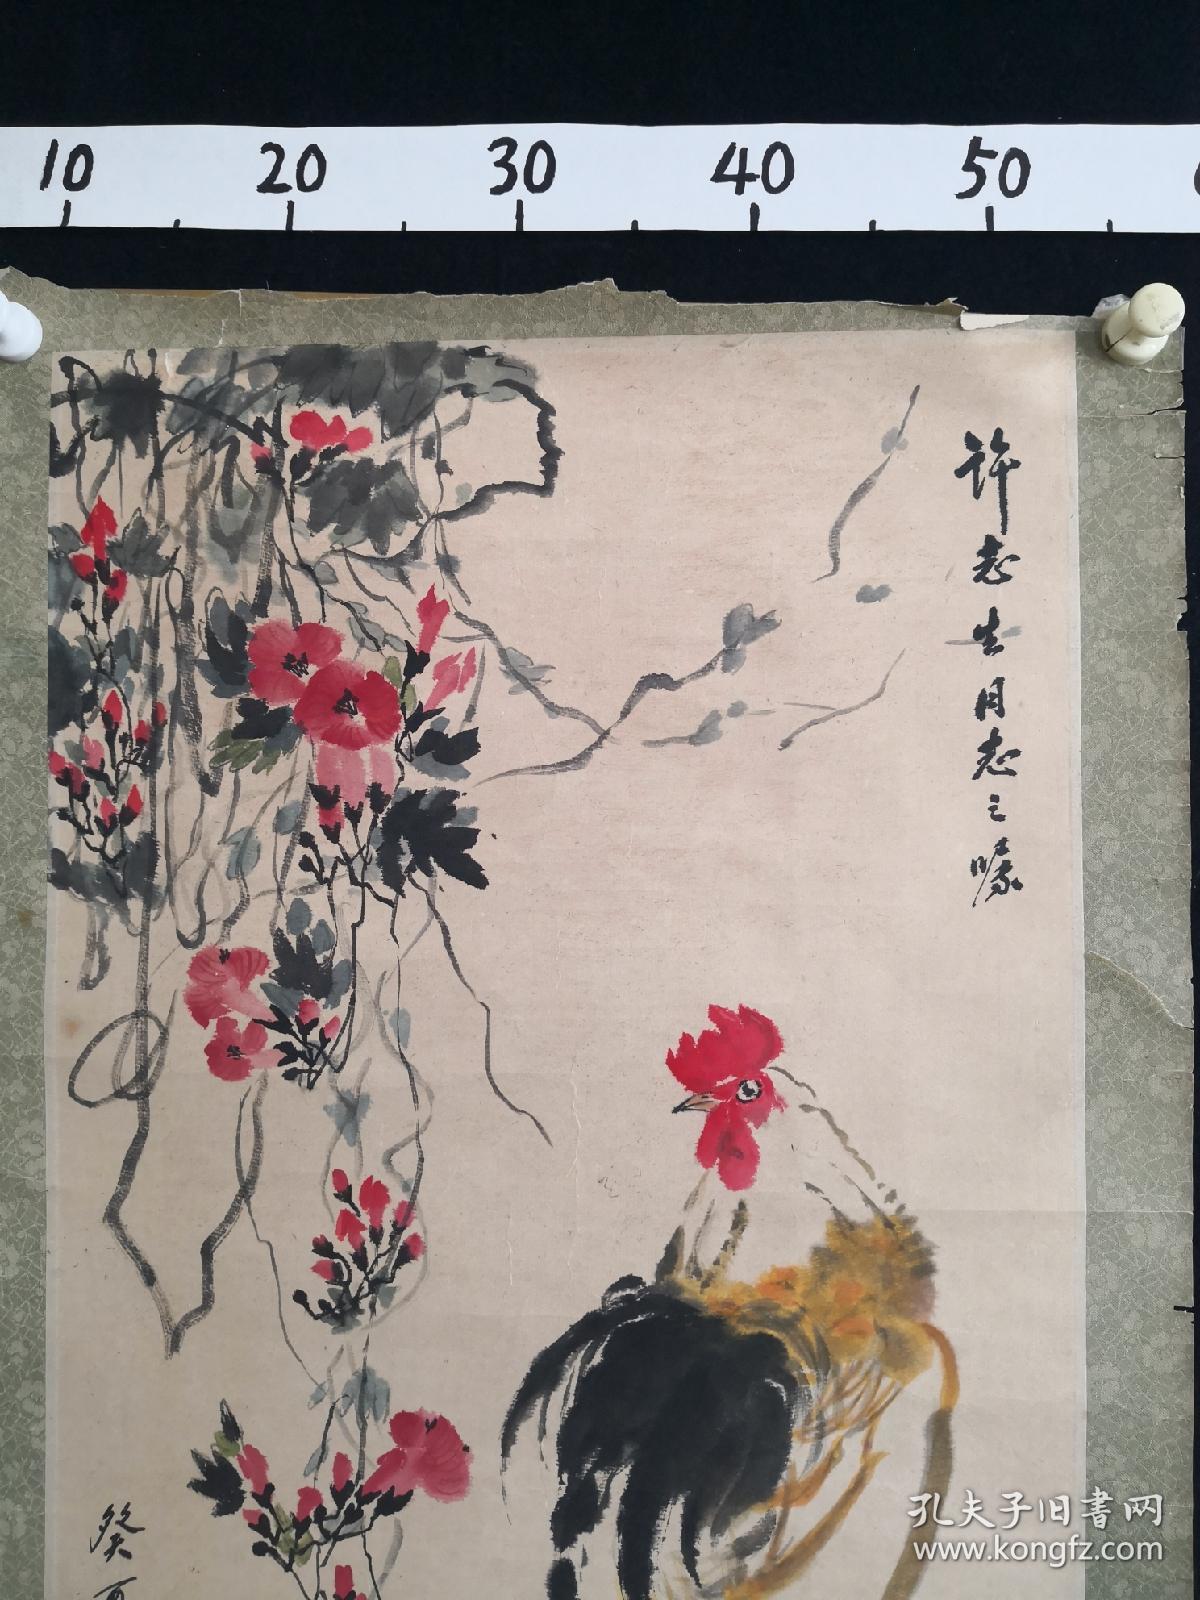 10 20 30 40 50
许志生同志之嘱
癸酉
孔夫子旧書网
www.kongfz.com